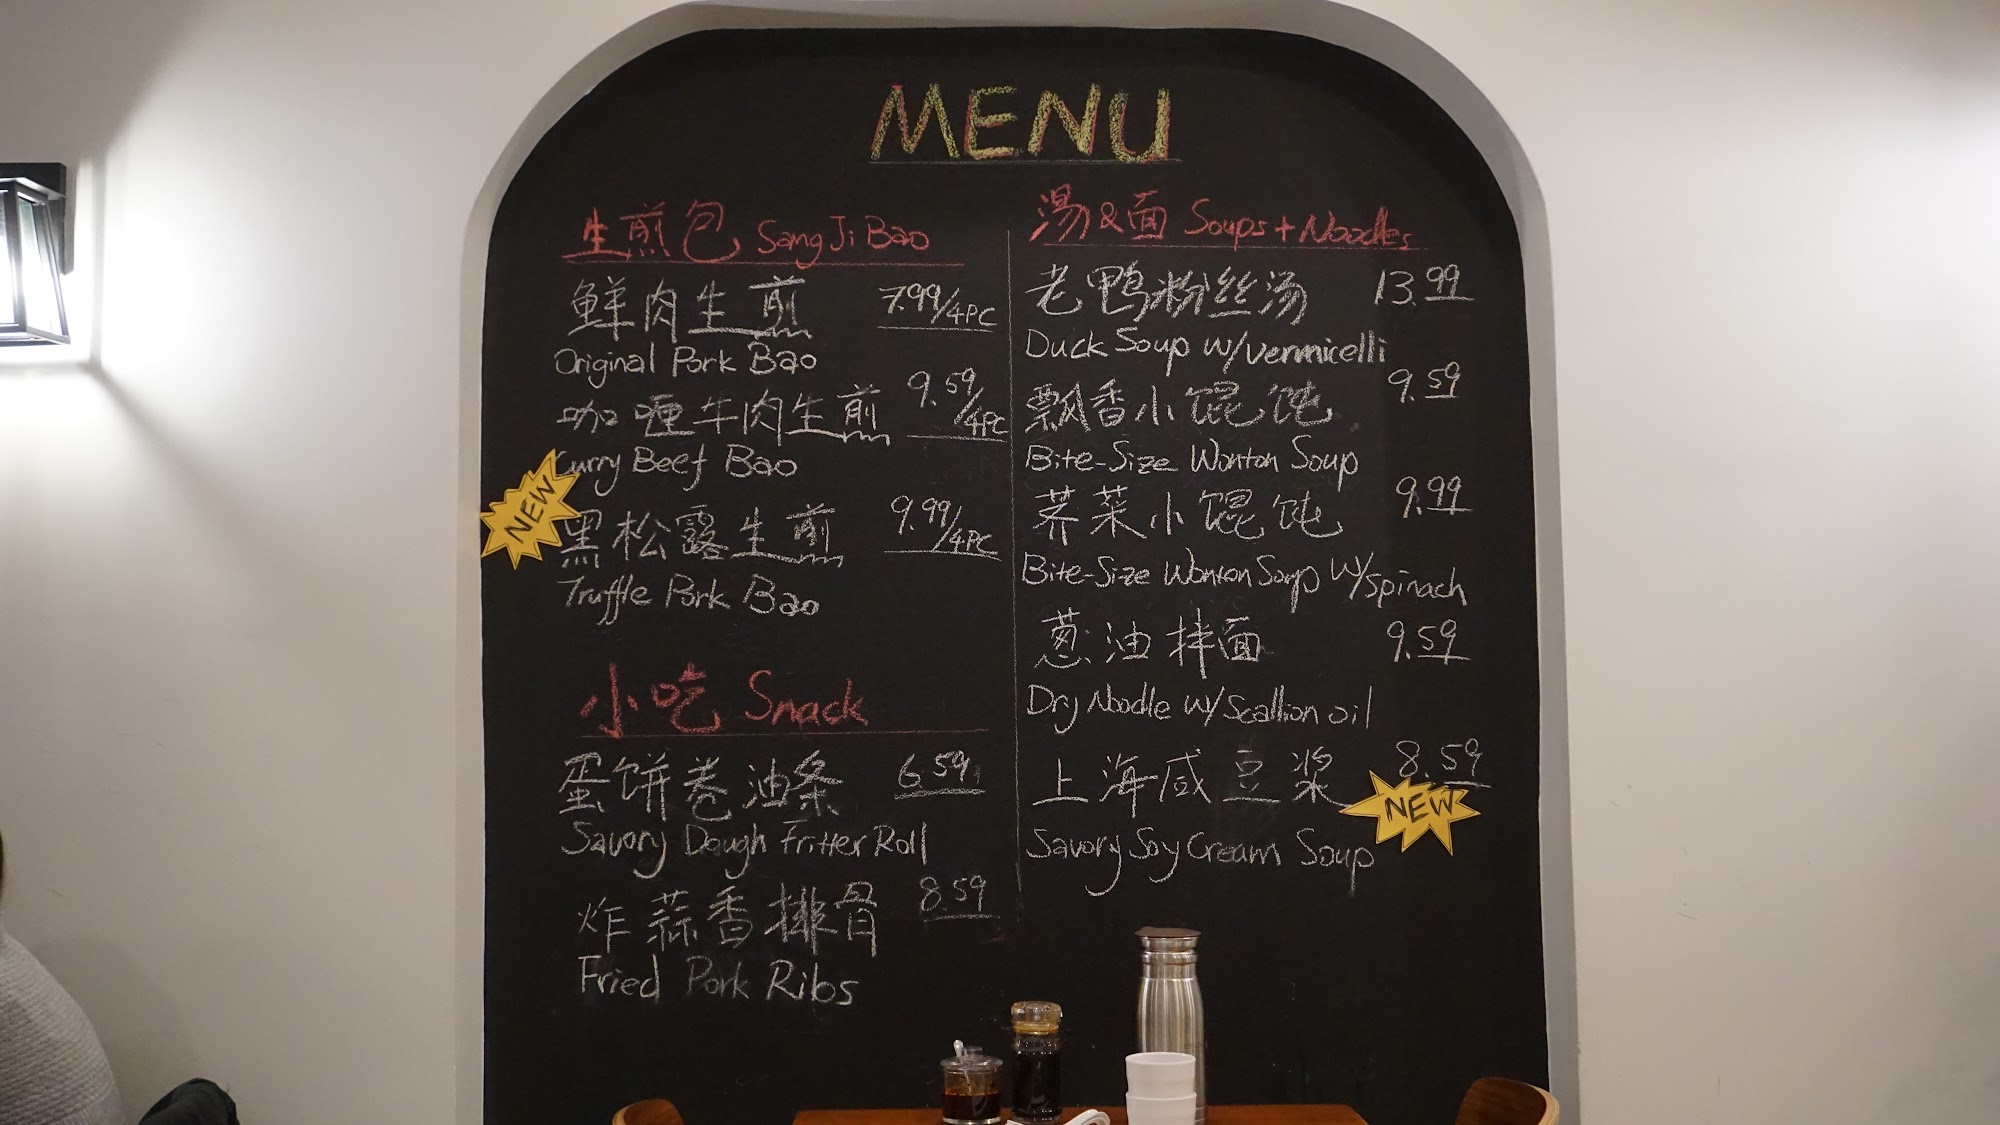 MENU
生煎包 Sang Ji Bao
鲜肉生煎 7.99/4PC
Original Pork Bao
咖喱牛肉生煎 9.59/4PC
Curry Beef Bao
NEW
黑松露生煎 9.99/4PC
Truffle Pork Bao
小吃 Snack
蛋饼卷油条 6.59
Savory Dough Fritter Roll
炸蒜香排骨 8.59
Fried Pork Ribs
湯&面 Soups+Noodles
老鸭粉丝汤 13.99
Duck Soup w/vermicelli
飘香小馄饨 9.59
Bite-Size Wonton Soup
荠菜小馄饨 9.99
Bite-Size Wonton Soup w/spinach
葱油拌面 9.59
Dry Noodle w/Scallion oil
上海咸豆浆 8.59
NEW
Savory Soy Cream Soup